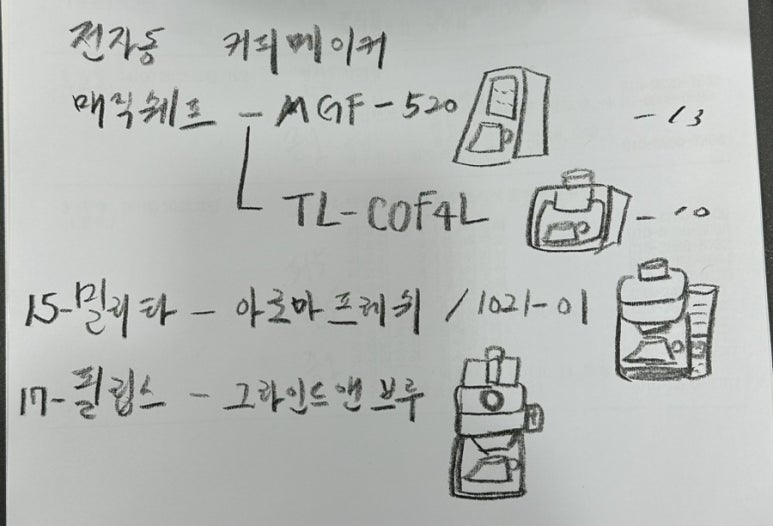 전자동 커피메이커
매직쉐프 - MGF-520 -13
TL-COF4L -10
15-밀리타 - 아로마프레쉬 /1021-01
17-필립스 - 그라인드앤브루